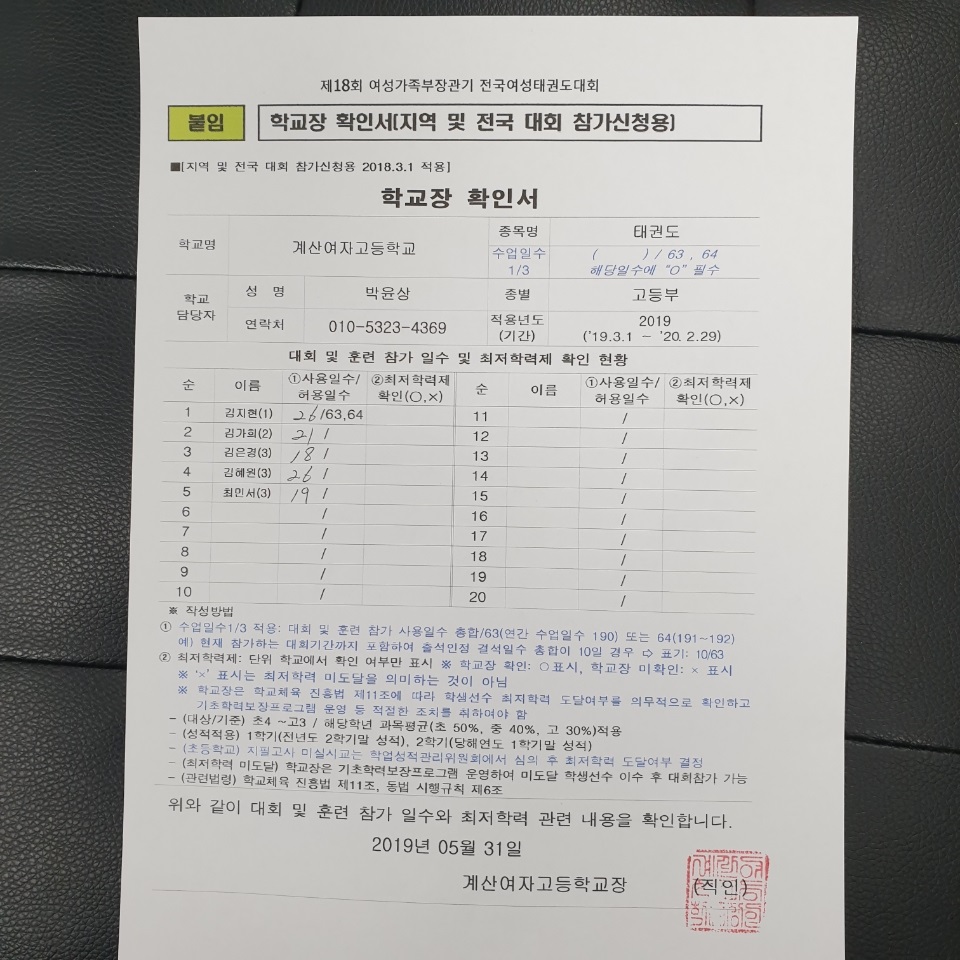 제18회 여성가족부장관기 전국여성태권도대회
붙임 학교장 확인서[지역 및 전국 대회 참가신청용]
■[지역 및 전국 대회 참가신청용 2018.3.1 적용]
학교장 확인서
학교명 계산여자고등학교 종목명 태권도
수업일수 1/3 ( ) / 63 , 64
해당일수에 "O" 필수
학교 담당자 성 명 박윤상 종별 고등부
연락처 010-5323-4369 적용년도 (기간) 2019
('19.3.1 ~ '20. 2.29)
대회 및 훈련 참가 일수 및 최저학력제 확인 현황
순 이름 ①사용일수/허용일수 ②최저학력제 확인(○,×) 순 이름 ①사용일수/허용일수 ②최저학력제 확인(○,×)
1 김지현(1) 26/63,64 11 /
2 김가희(2) 21 / 12 /
3 김은경(3) 18 / 13 /
4 김혜원(3) 26 / 14 /
5 최민서(3) 19 / 15 /
6 / 16 /
7 / 17 /
8 / 18 /
9 / 19 /
10 / 20 /
※ 작성방법
① 수업일수1/3 적용: 대회 및 훈련 참가 사용일수 총합/63(연간 수업일수 190) 또는 64(191~192)
예) 현재 참가하는 대회기간까지 포함하여 출석인정 결석일수 총합이 10일 경우 ⇨ 표기: 10/63
② 최저학력제: 단위 학교에서 확인 여부만 표시 ※ 학교장 확인: ○표시, 학교장 미확인: × 표시
※ '×' 표시는 최저학력 미도달을 의미하는 것이 아님
※ 학교장은 학교체육 진흥법 제11조에 따라 학생선수 최저학력 도달여부를 의무적으로 확인하고
기초학력보장프로그램 운영 등 적절한 조치를 취하여야 함
- (대상/기준) 초4 ~고3 / 해당학년 과목평균(초 50%, 중 40%, 고 30%)적용
- (성적적용) 1학기(전년도 2학기말 성적), 2학기(당해연도 1학기말 성적)
- (초등학교) 지필고사 미실시교는 학업성적관리위원회에서 심의 후 최저학력 도달여부 결정
- (최저학력 미도달) 학교장은 기초학력보장프로그램 운영하여 미도달 학생선수 이수 후 대회참가 가능
- (관련법령) 학교체육 진흥법 제11조, 동법 시행규칙 제6조
위와 같이 대회 및 훈련 참가 일수와 최저학력 관련 내용을 확인합니다.
2019년 05월 31일
계산여자고등학교장 (직인)